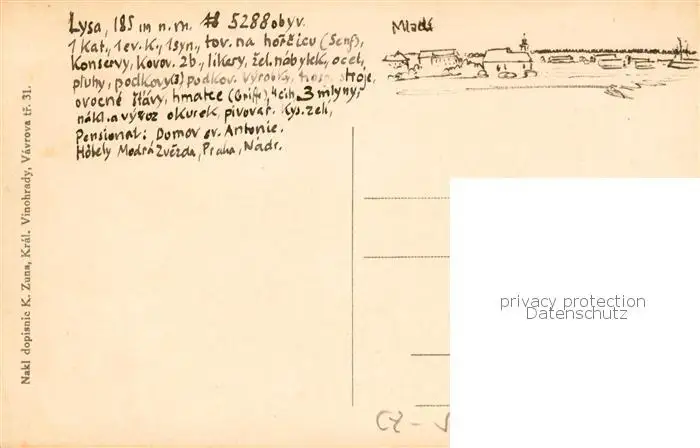 Lysa, 185 m n. m. 5288 obyv.
1 kat., 1 ev. k., 1 syn., tov. na hořčicu (Senf),
Konservy, kovov. zb., likery, žel. nábytek, ocet,
pluhy, podkovy(3) podkov. výrobky, hosp. stroje,
ovocné šťávy, hmatce (Griffe), 4 cih. 3 mlyny,
nákl. a vývoz okurek, pivovar. Kys. zelí,
Pensionat: Domov sv. Antonie.
Hôtely Modrá Zvězda, Praha, Nádr.
Mladá
Nakl dopisnic K. Zuna, Král. Vinohrady, Vávrova tř. 31.
privacy protection
Datenschutz
CZ -